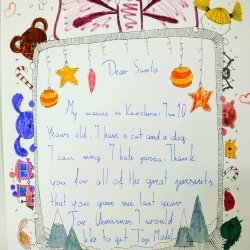 Dear Santa
My name is Karolina. I'm 10
Years old. I have a cat and a dog.
I can sing. I hate pizza. Thank
you for all of the great presents
that you gave me last year.
For Christmas I would
like to get Top Model